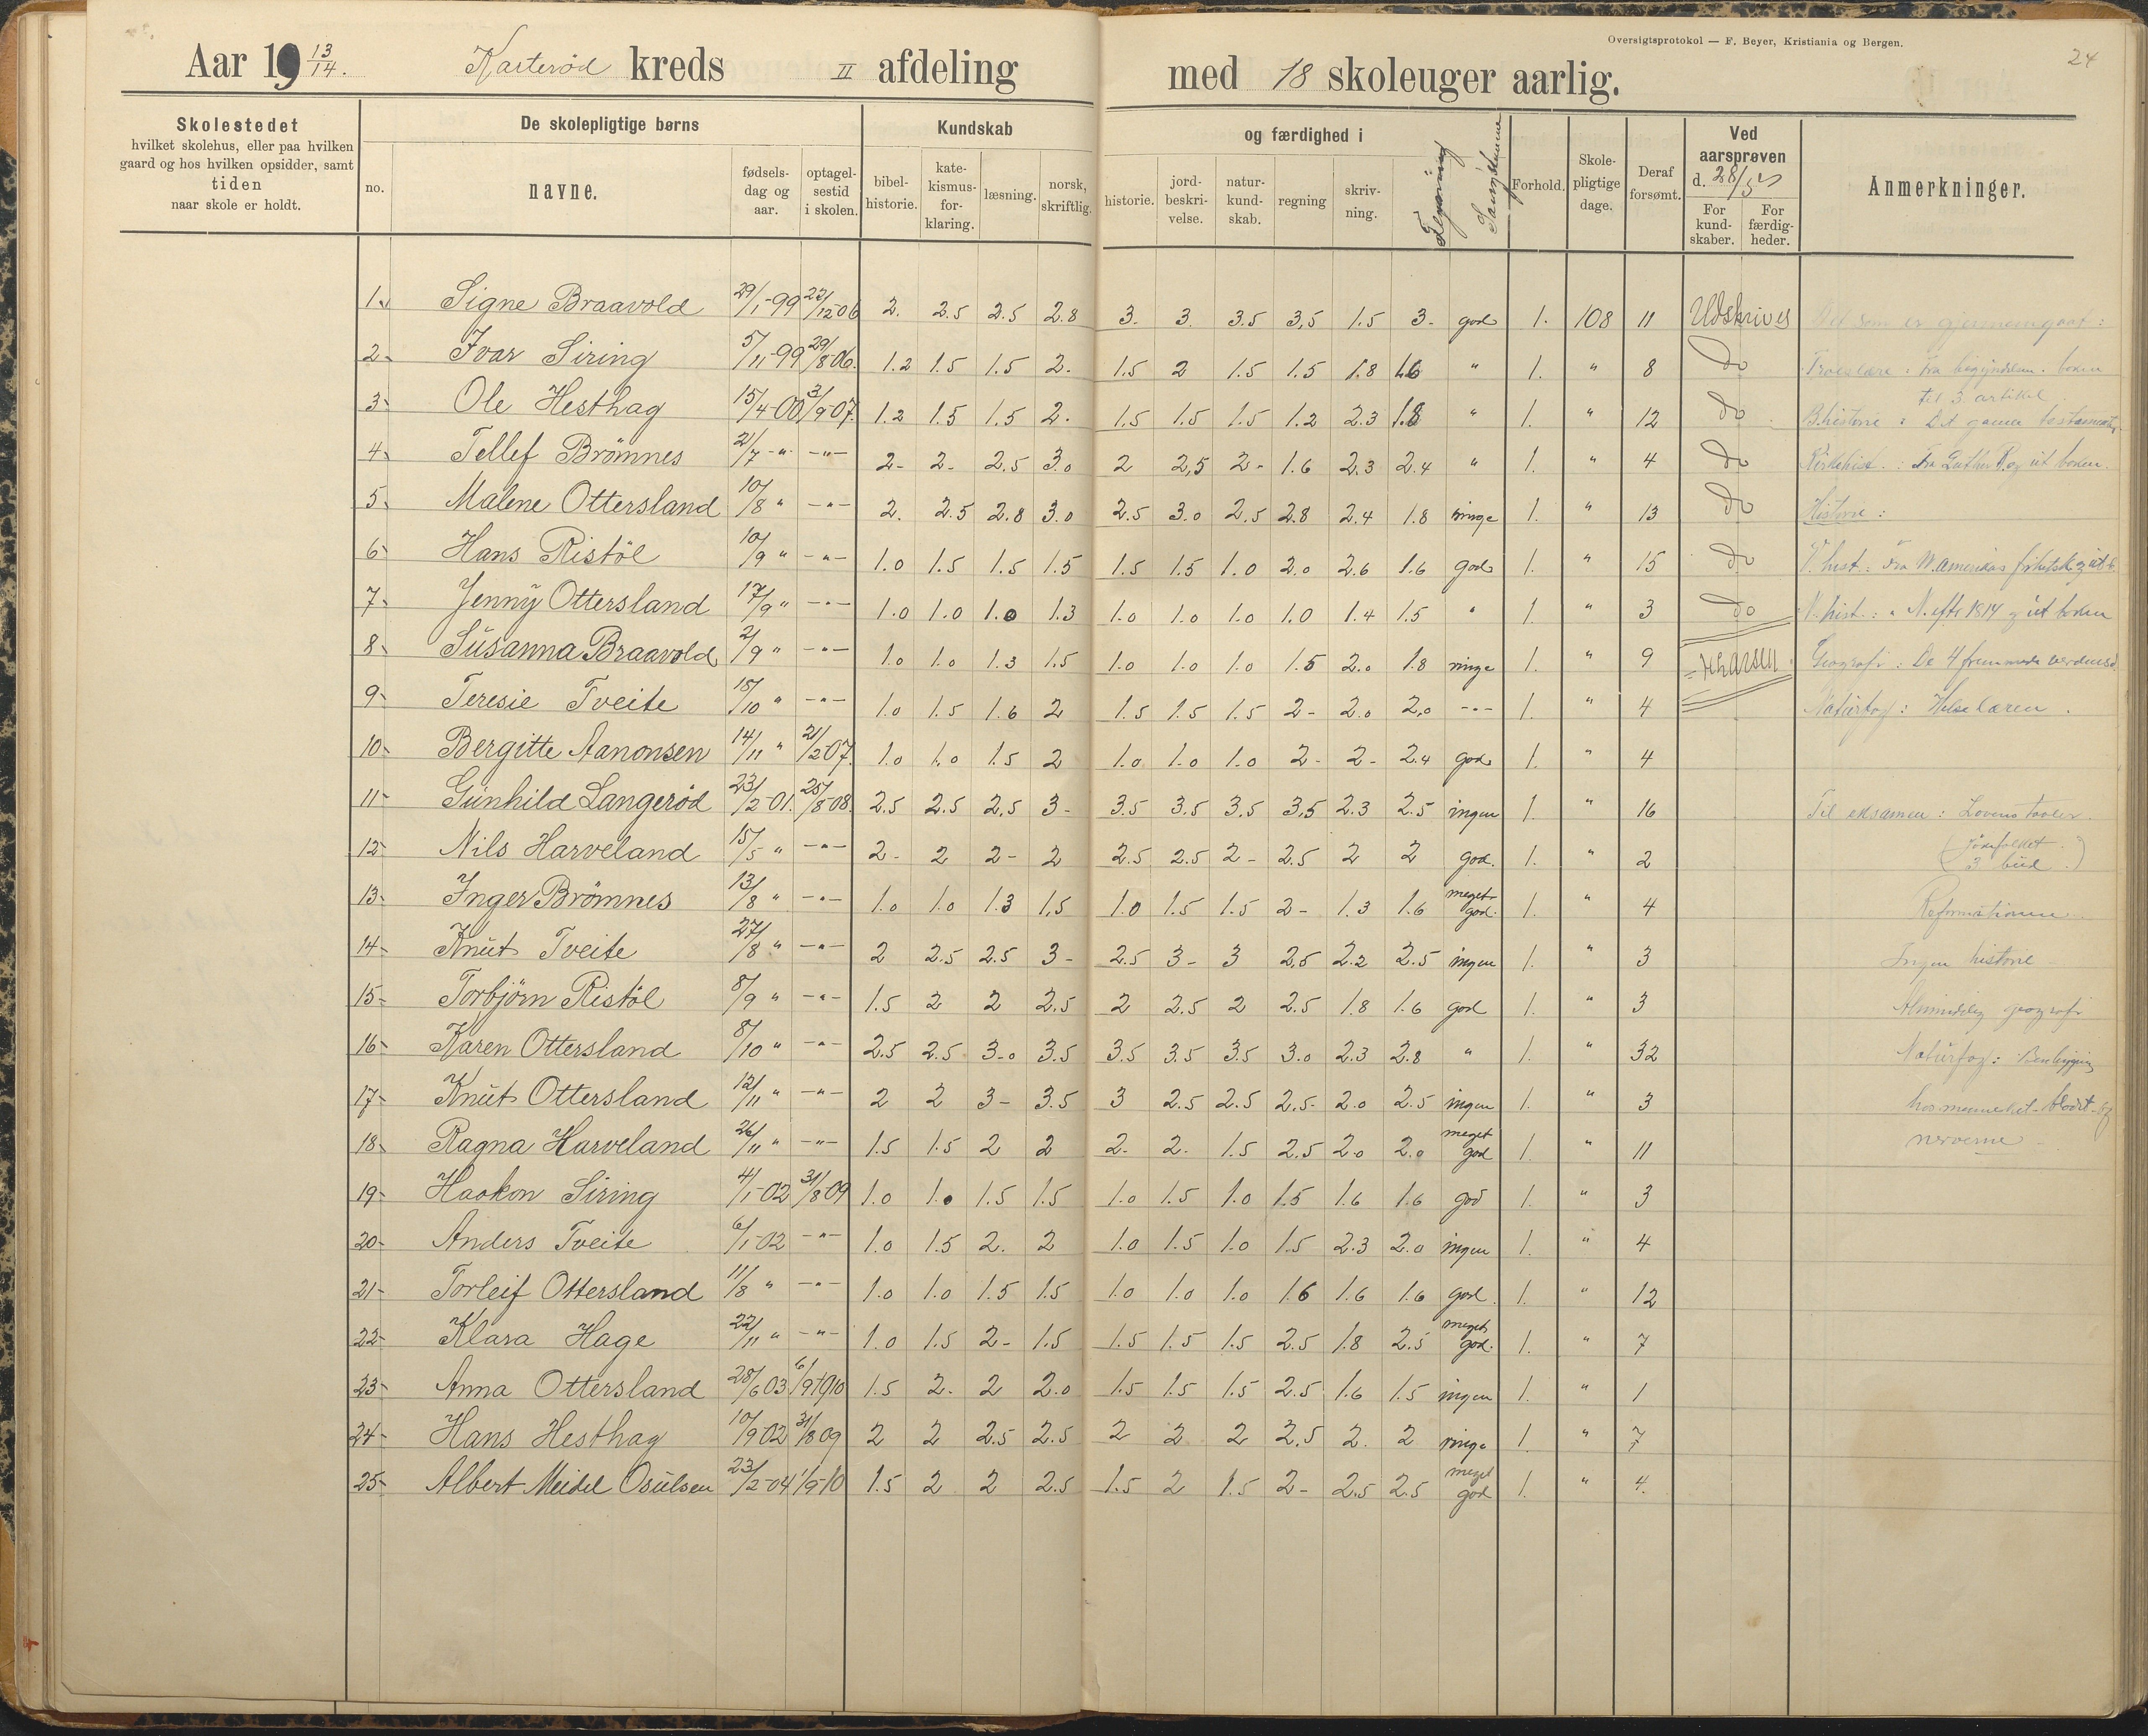 Oversigtsprotokol — F. Beyer, Kristiania og Bergen.
24
Aar 1913/14. Karterød kreds II afdeling med 18 skoleuger aarlig.
Skolestedet
hvilket skolehus, eller paa hvilken
gaard og hos hvilken opsidder, samt
tiden
naar skole er holdt.
De skolepligtige børns
no. navne. fødsels-dag og aar. optagel-sestid i skolen.
Kundskab og færdighed i
bibel-historie. kate-kismus-for-klaring. læsning. norsk, skriftlig. historie. jord-beskri-velse. natur-kund-skab. regning skriv-ning. Tegning Sangstemme
Forhold. Skole-pligtige dage. Deraf forsømt. Ved aarsprøven d. 28/5 For kund-skaber. For færdig-heder. Anmerkninger.
1. Signe Braavold 29/1-99 22/12-06 2. 2.5 2.5 2.8 3- 3. 3.5 3,5 1.5 3- god 1. 108 11 Udskrives
2- Ivar Siring 5/11-99 29/8-06. 1.2 1.5 1.5 2. 1.5 2 1.5 1.5 1.8 1.6 " 1. " 8 do
3- Ole Hesthag 15/4-00 3/9-07. 1.2 1.5 1.5 2. 1.5 1.5 1.5 1.2 2.3 1.8 " 1. " 12 do
til 3. artikel
B.historie : Det gamle testamente
4. Tellef Brömnes 21/7 -"- -"- 2- 2- 2.5 3.0 2 2,5 2- 1.6 2.3 2.4 " 1. " 4 do
5. Malene Ottersland 10/8 " -"- 2. 2.5 2.8 3.0 2.5 3.0 2.5 2.8 2.4 1.8 ringe 1. " 13 do Historie :
6- Hans Ristöl 10/9 " -"- 1.0 1.5 1.5 1.5 1.5 1.5 1.0 2.0 2.6 1.6 god 1. " 15 do
7- Jenny Ottersland 17/9 " -"- 1.0 1.0 1.0 1.3 1.0 1.0 1.0 1.0 1.4 1.5 " 1. " 3 do N. hist. : " N. efter 1814 og ut boken
8- Susanna Braavold 2/9 " -"- 1.0 1.0 1.3 1.5 1.0 1.0 1.0 1.5 2.0 1.8 ringe 1. " 9 Geografi : De 4 fremmede verdensd.
9- Teresie Tveite 18/10 " -"- 1.0 1.5 1.6 2 1.5 1.5 1.5 2- 2.0 2,0 -"- 1. " 4 Naturfag : Helselæren.
10- Bergitte Aanonsen 14/11 " 21/2-07. 1.0 1.0 1.5 2 1.0 1.0 1.0 2- 2- 2.4 god 1. " 4
11- Gunhild Langeröd 23/2-01. 25/8-08. 2.5 2.5 2,5 3- 3.5 3.5 3.5 3,5 2.3 2.5 ingen 1. " 16 Til eksamen : Lovens tavler.
12- Nils Harveland 15/5 " -"- 2- 2 2- 2 2.5 2.5 2- 2.5 2 2 god. 1. " 2
3 bud
13- Inger Brömnes 13/8 " -"- 1.0 1.0 1.3 1,5 1.0 1.5 1.5 2- 1.3 1.6 meget god. 1. " 4 Reformationen
14- Knut Tveite 27/8 " -"- 2 2.5 2.5 3- 2.5 3- 3 2,5 2.2 2.5 ingen 1. " 3 Ingen historie
15- Torbjörn Ristöl 8/9 " -"- 1.5 2 2 2.5 2 2.5 2 2.5 1.8 1.6 god 1. " 3 Almindelig geografi
16- Karen Ottersland 8/10 " -"- 2.5 2.5 3.0 3.5 3.5 3.5 3.5 3.0 2.3 2.8 " 1. " 32 Naturfag : Benbygning
17- Knut Ottersland 12/11 " -"- 2 2 3- 3.5 3 2.5 2.5 2.5. 2.0 2.5 ingen 1. " 3 hos mennesket - blodet - og
18. Ragna Harveland 26/11 " -"- 1.5 1.5 2 2 2- 2- 1.5 2.5 2.0 2.0 meget god 1. " 11 nerverne
19- Haakon Siring 4/1-02 31/8-09 1.0 1.0 1.5 1.5 1.0 1.5 1.0 1.5 1.6 1.6 god 1. " 3
20- Anders Tveite 6/1-02 -"- 1.0 1.5 2. 2 1.0 1.5 1.0 1.5 2.3 2.0 ingen 1. " 4
21- Torleif Ottersland 11/8 " -"- 1.0 1.0 1.5 1.5 1.0 1.0 1.0 1.6 1.6 1.6 god. 1. " 12
22- Klara Hage 22/11 " -"- 1.0 1.5 2- 1.5 1.5 1.5 1.5 2.5 1.8 2.5 meget god. 1. " 7
23- Anna Ottersland 28/6 03 6/9-1910 1.5 2- 2 2.0 1.5 1.5 1.5 2.5 1.6 1.5 ingen 1. " 1
24- Hans Hesthag 10/9 02 31/8 09 2 2 2.5 2.5 2 2 2 2.5 2. 2 ringe 1. " 7
25- Albert Meidel Osulsen 23/2-04 1/9-10 1.5 2 2 2.5 1.5 2 1.5 2- 2.5 2.5 meget god 1. " 4.